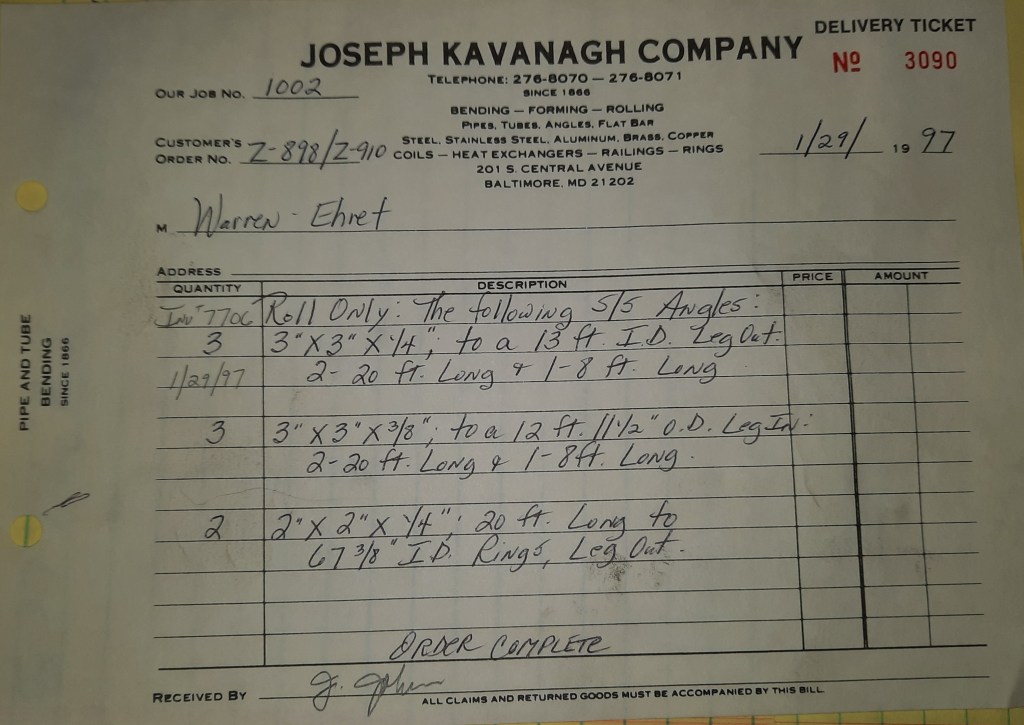 DELIVERY TICKET
JOSEPH KAVANAGH COMPANY
Nº 3090
TELEPHONE: 276-8070 — 276-8071
SINCE 1866
OUR JOB NO. 1002
BENDING — FORMING — ROLLING
PIPES, TUBES, ANGLES, FLAT BAR
STEEL, STAINLESS STEEL, ALUMINUM, BRASS, COPPER
CUSTOMER'S
ORDER NO. Z-898/Z-910
COILS — HEAT EXCHANGERS — RAILINGS — RINGS
1/29/ 19 97
201 S. CENTRAL AVENUE
BALTIMORE, MD 21202
M Warren - Ehret
ADDRESS
QUANTITY DESCRIPTION PRICE AMOUNT
Inv# 7706 Roll Only: The following S/S Angles:
3 3" X 3" X 1/4"; to a 13 ft. I.D. Leg Out.
1/29/97 2- 20 ft. Long & 1-8 ft. Long
3 3" X 3" X 3/8"; to a 12 ft. 11 1/2" O.D. Leg In:
2-20 ft. Long & 1-8 ft. Long.
2 2" X 2" X 1/4"; 20 ft. Long to
67 3/8" I.D. Rings, Leg Out.
ORDER COMPLETE
RECEIVED BY J.
ALL CLAIMS AND RETURNED GOODS MUST BE ACCOMPANIED BY THIS BILL.
PIPE AND TUBE
BENDING
SINCE 1866